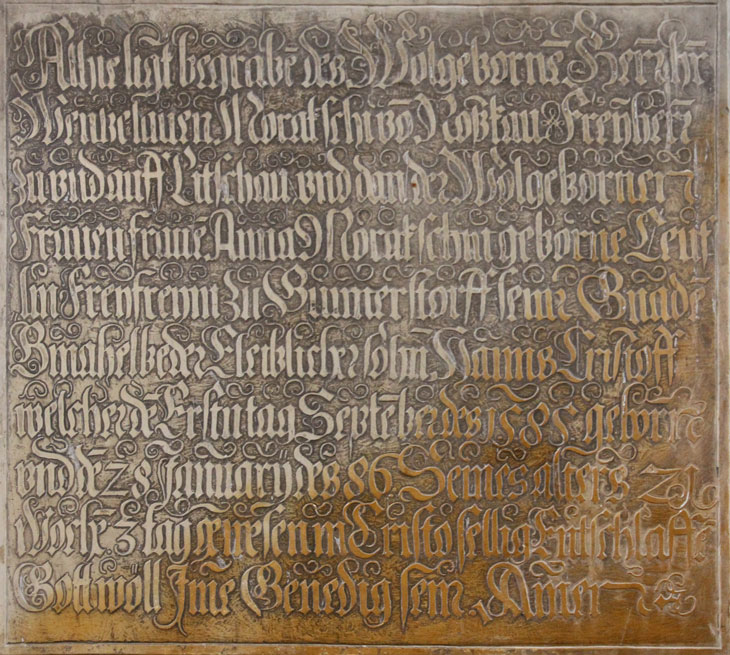 Alhie ligt begrabē des Wolgebornē Herrn hr̄
Wentzelauen Moratschi vō Noßkau Freyherr̄
zu vnd auff Litschau vnd dan der Wolgebornen
Frauen fraue Anna Moratschin geborne Leut
in Freyfreyin zu Gumerstorff seiner Gnadē
Gmahel beder Eleiblicher sohn Hanns Cristoff
welcher dē Ersten tag Septēber des 1585 geborn
vnd dē 28 January des 86 Seines alters 21
Wochē 3 tag gewesen in Cristo selig Entschlaffē
Gott wöll Ime Genedig sein Amen